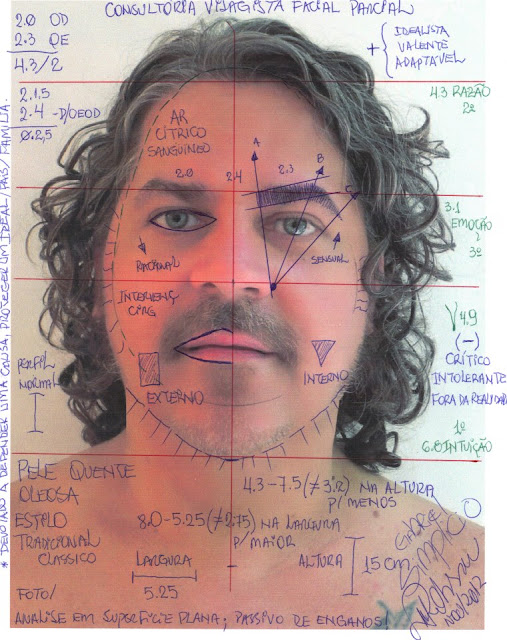 CONSULTORIA VISAGISTA FACIAL PARCIAL
2.0 OD
2.3 OE
4.3/2
2.1.5
2.4 -D/OEOD
0.2,5
+ { IDEALISTA
VALENTE
ADAPTÁVEL
4.3 RAZÃO
2º
AR
CÍTRICO
SANGUÍNEO
A
B
C
2.0
2.4
2.3
3.1
EMOÇÃO
3º
RACIONAL
SENSUAL
INTERVENÇ
CIRG
4.9
(-)
CRÍTICO
INTOLERANTE
FORA DA REALIDADE
PERFIL
NORMAL
EXTERNO
INTERNO
1º
6.0 INTUIÇÃO
PELE QUENTE
OLEOSA
ESTILO
TRADICIONAL
CLASSICO
4.3-7.5 (≠3.2) NA ALTURA
P/MENOS
8.0-5.25 (≠2.75) NA LARGURA
P/MAIOR
LARGURA
5.25
ALTURA
15 cm
NOV/2012
FOTO/
ANALISE EM SUPERFÍCIE PLANA; PASSIVO DE ENGANOS!
* DEVOTADO A DEFENDER UMA CAUSA, PROTEGER UM IDEAL, PAÍS/FAMÍLIA.